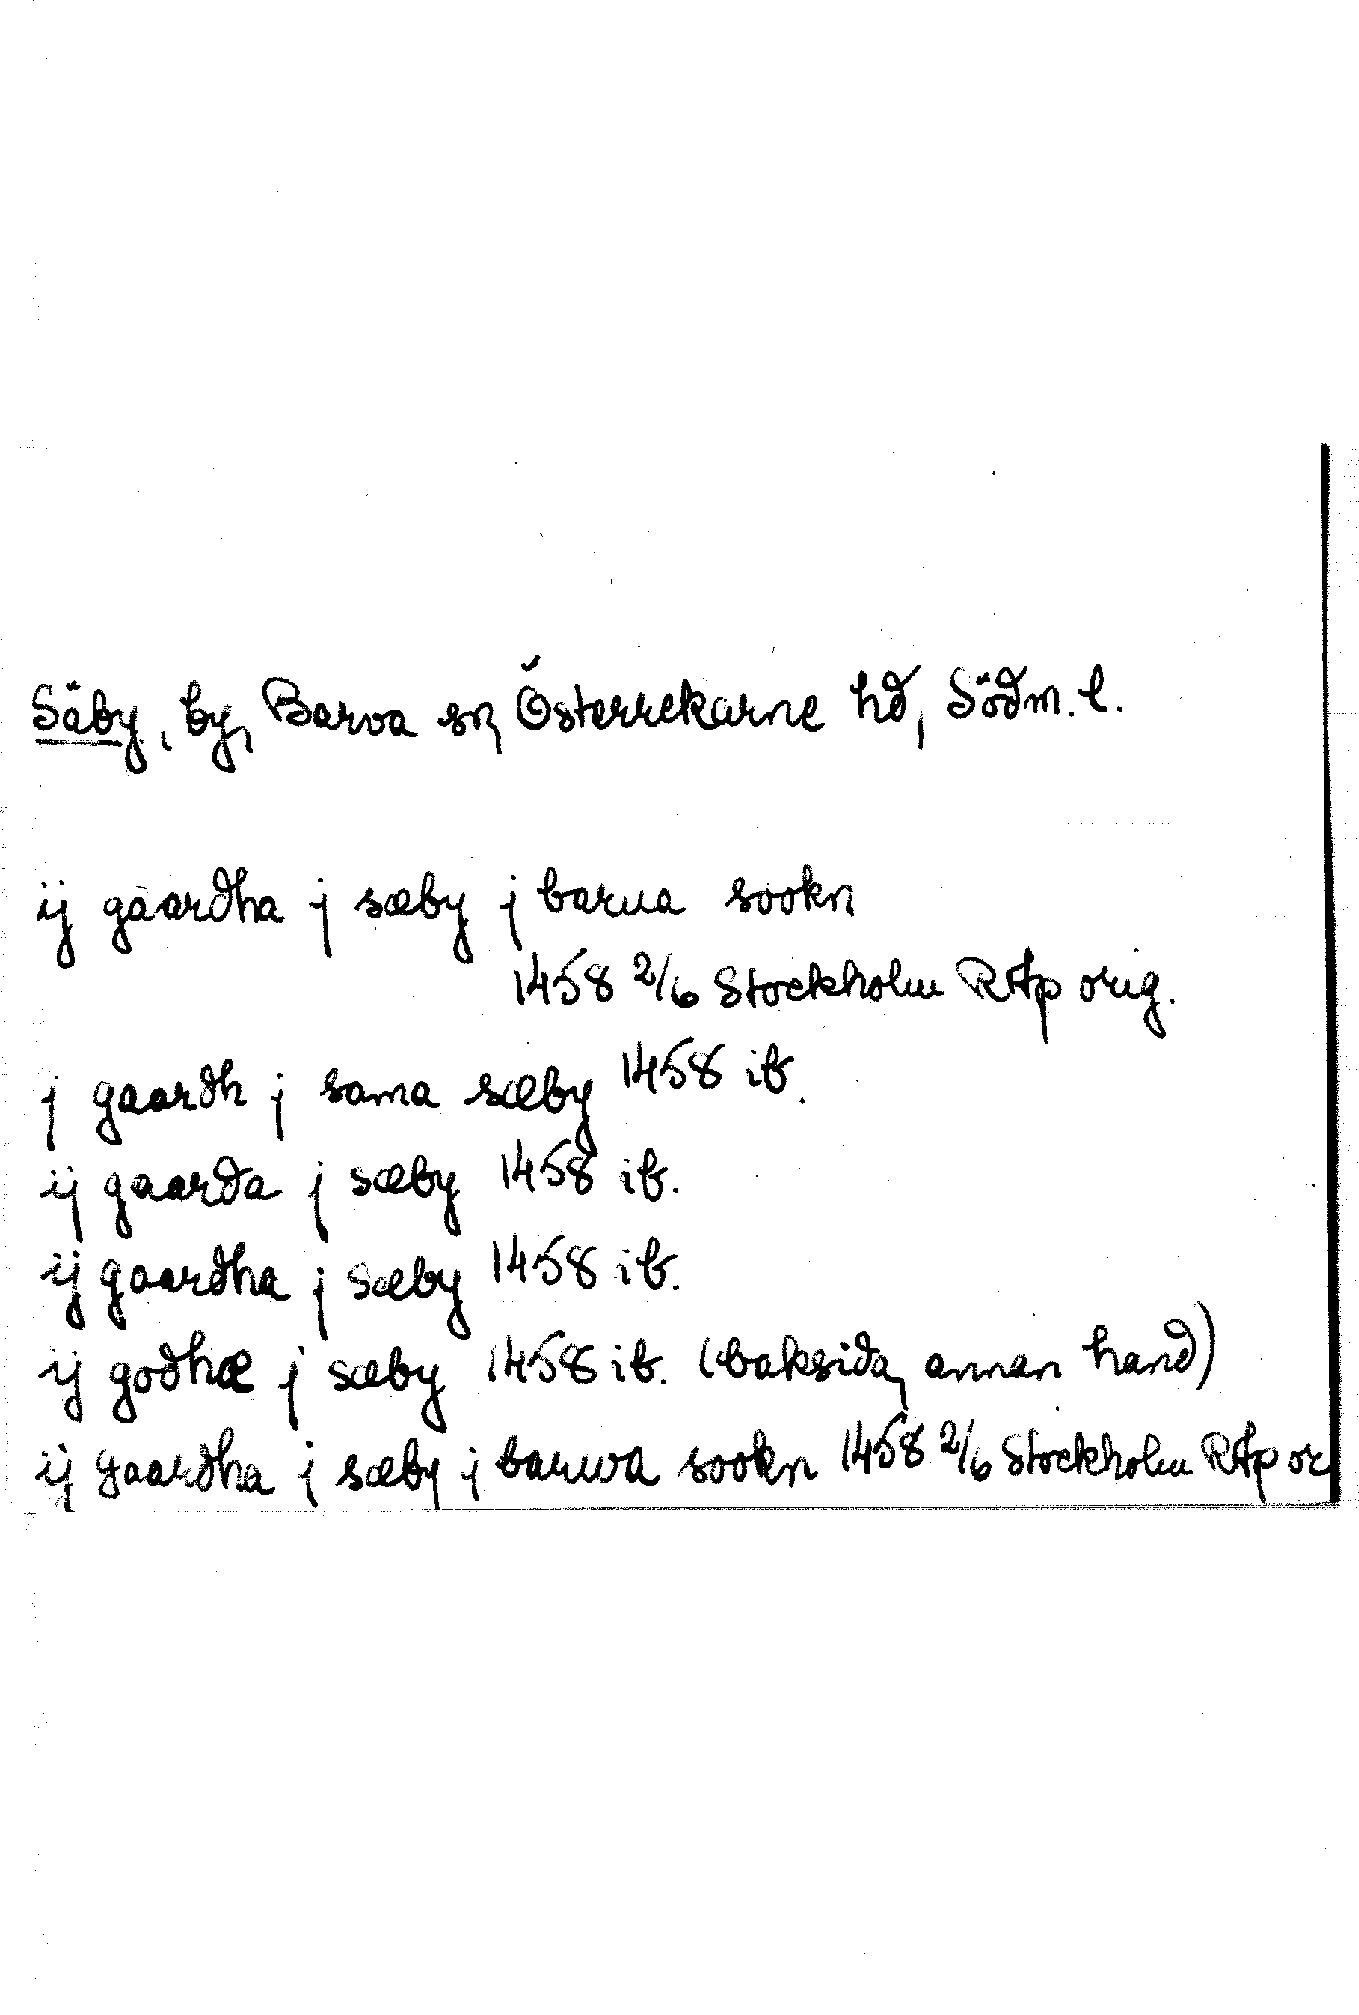 Säby, by, Barva sn, Österrekarne hd, Södm. l.
ij gaardha j sæby j barua sookn
1458 2/6 Stockholm RAp orig.
j gaardh j sama sæby 1458 ib.
ij gaarda j sæby 1458 ib.
ij gaardha j sæby 1458 ib.
ij godhæ j sæby 1458 ib. (baksida, annan hand)
ij gaardha j sæby j barwa sookn 1458 2/6 Stockholm RAp or